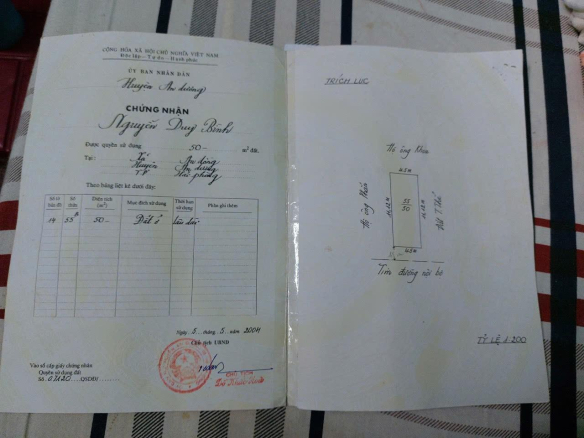 CỘNG HÒA XÃ HỘI CHỦ NGHĨA VIỆT NAM
Độc lập - Tự do - Hạnh phúc
ỦY BAN NHÂN DÂN
Huyện An dương
CHỨNG NHẬN
Nguyễn Duy Bình
Được quyền sử dụng 50 m² đất.
Tại: Xã An đồng
Huyện An dương
TP Hải phòng
Theo bảng liệt kê dưới đây:
Số tờ bản đồ Số thửa Diện tích (m²) Mục đích sử dụng Thời hạn sử dụng Phần ghi thêm
14 55 50 Đất ở Lâu dài
Ngày 5 tháng 5 năm 2004
Chủ tịch UBND
Vào sổ cấp giấy chứng nhận
Quyền sử dụng đất
Số QSDĐ/
CHỦ TỊCH
TRÍCH LỤC
Hộ ông
Hộ ông
55
50
Tim đường nội bộ
TỶ LỆ 1:200